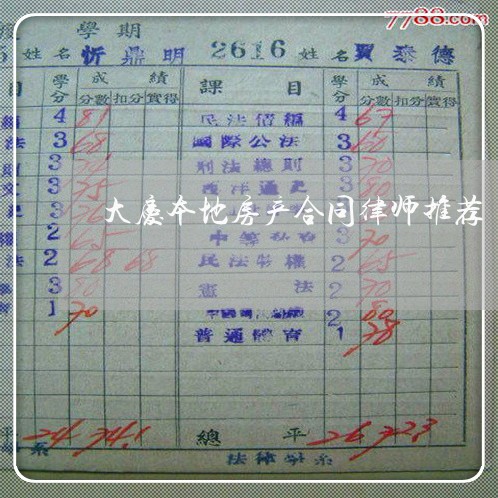 7788.com
學期
姓名 忻鼎明 2616 姓名 賈泰德
目 學分 成績 課目 學分 成績
分數 扣分 實得 分數 扣分 實得
4 81 民法債編 4 67
法 3 68 國際公法 3 60
3 刑法總則 3 70
3 75 3 80
大慶本地房产合同律师推荐
2 65 3 70
法 2 68 68 民法物權 2 65
3 80 憲法 2 70
1 70 2 80
普通體育 1 78
平 24 74.1 總平 26 72.3
系 法律學系